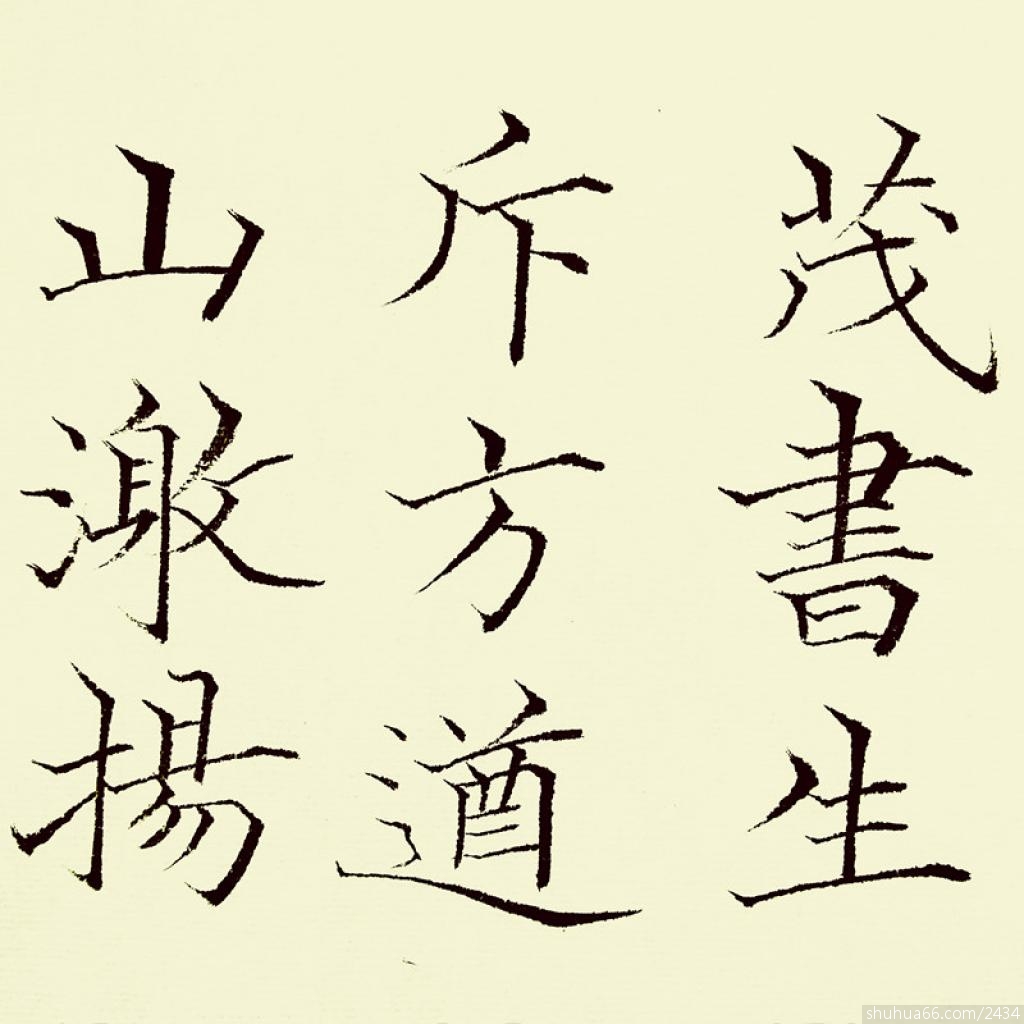 茂書生
斥方遒
山激揚
shuhua66.com/2434